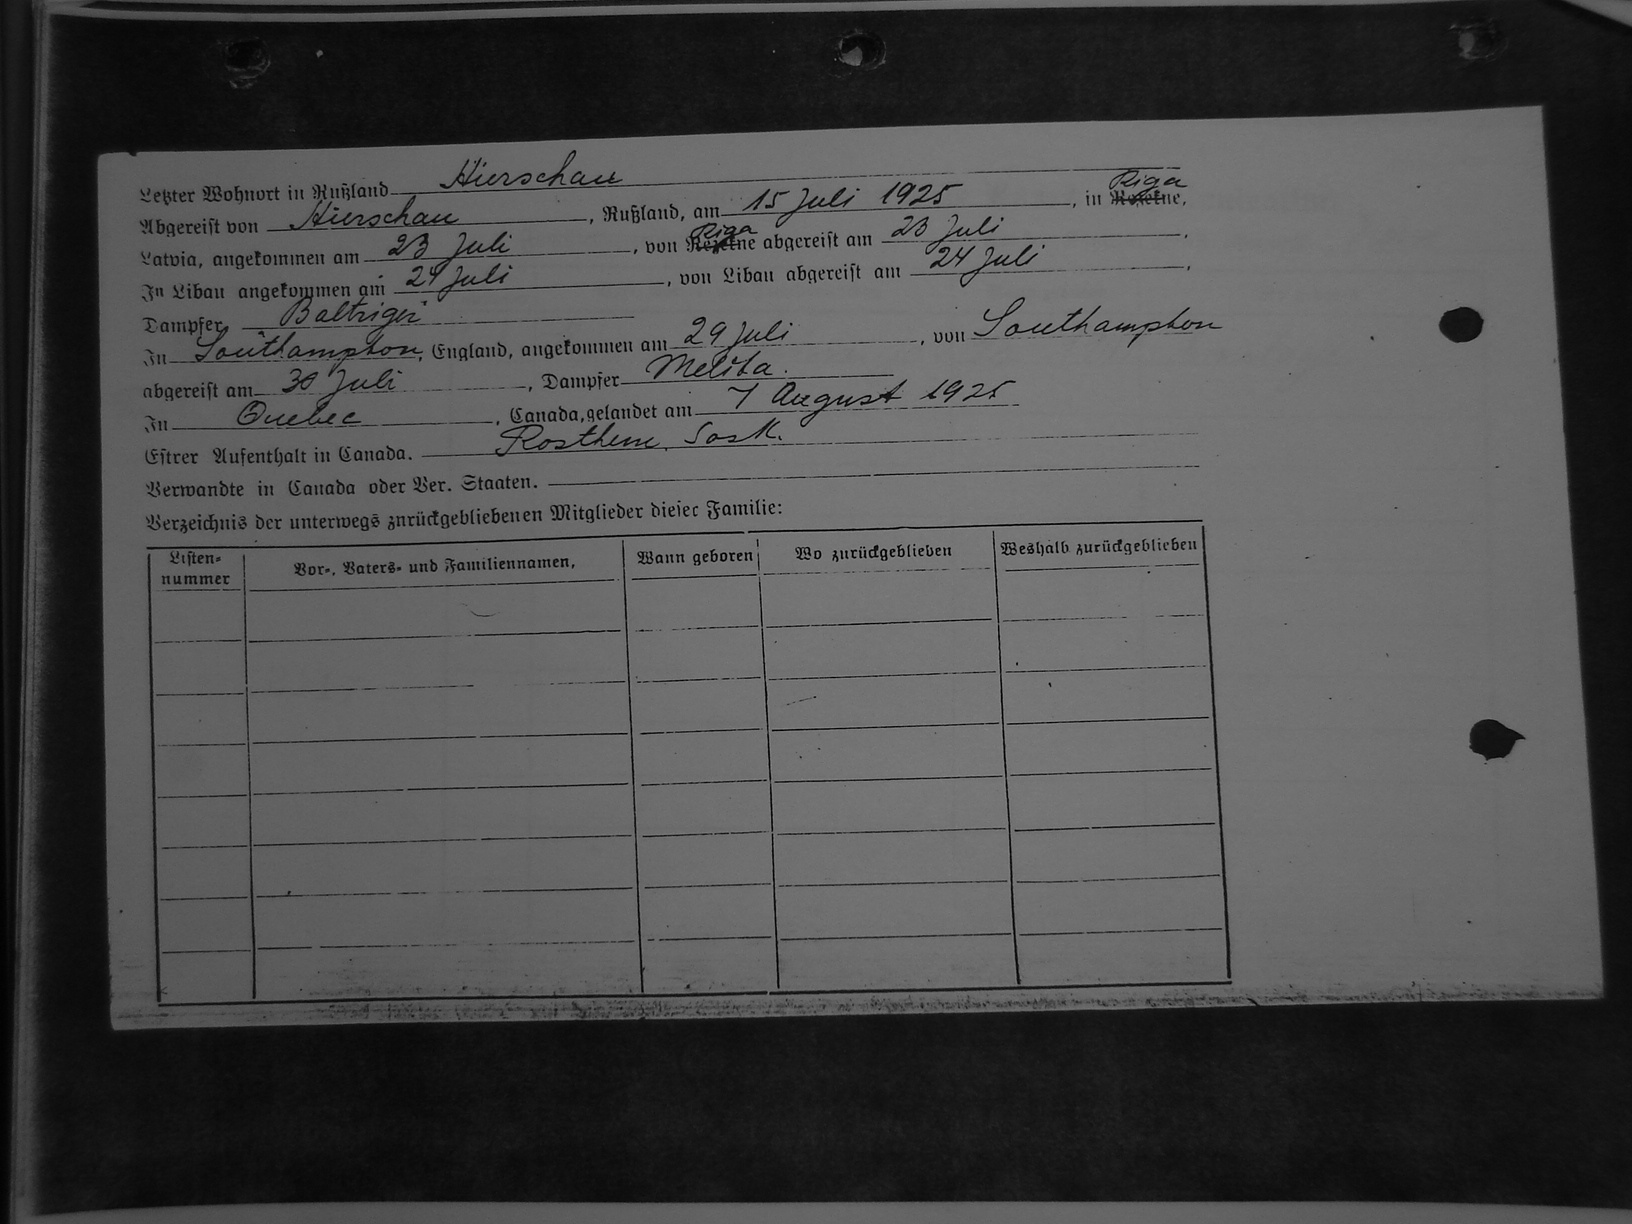 Letzter Wohnort in Rußland Hierschau
Abgereist von Hierschau, Rußland, am 15 Juli 1925, in Riga Rezekne,
Latvia, angekommen am 23 Juli, von Riga Rezekne abgereist am 23 Juli.
In Libau angekommen am 24 Juli, von Libau abgereist am 24 Juli.
Dampfer Baltriger
In Southampton, England, angekommen am 29 Juli, von Southampton
abgereist am 30 Juli, Dampfer Melita.
In Quebec, Canada, gelandet am 7 August 1925
Estrer Aufenthalt in Canada. Rosthern, Sask.
Verwandte in Canada oder Ver. Staaten.
Verzeichnis der unterwegs zurückgebliebenen Mitglieder dieser Familie:
Listen-nummer Vor-, Vaters- und Familiennamen, Wann geboren Wo zurückgeblieben Weshalb zurückgeblieben